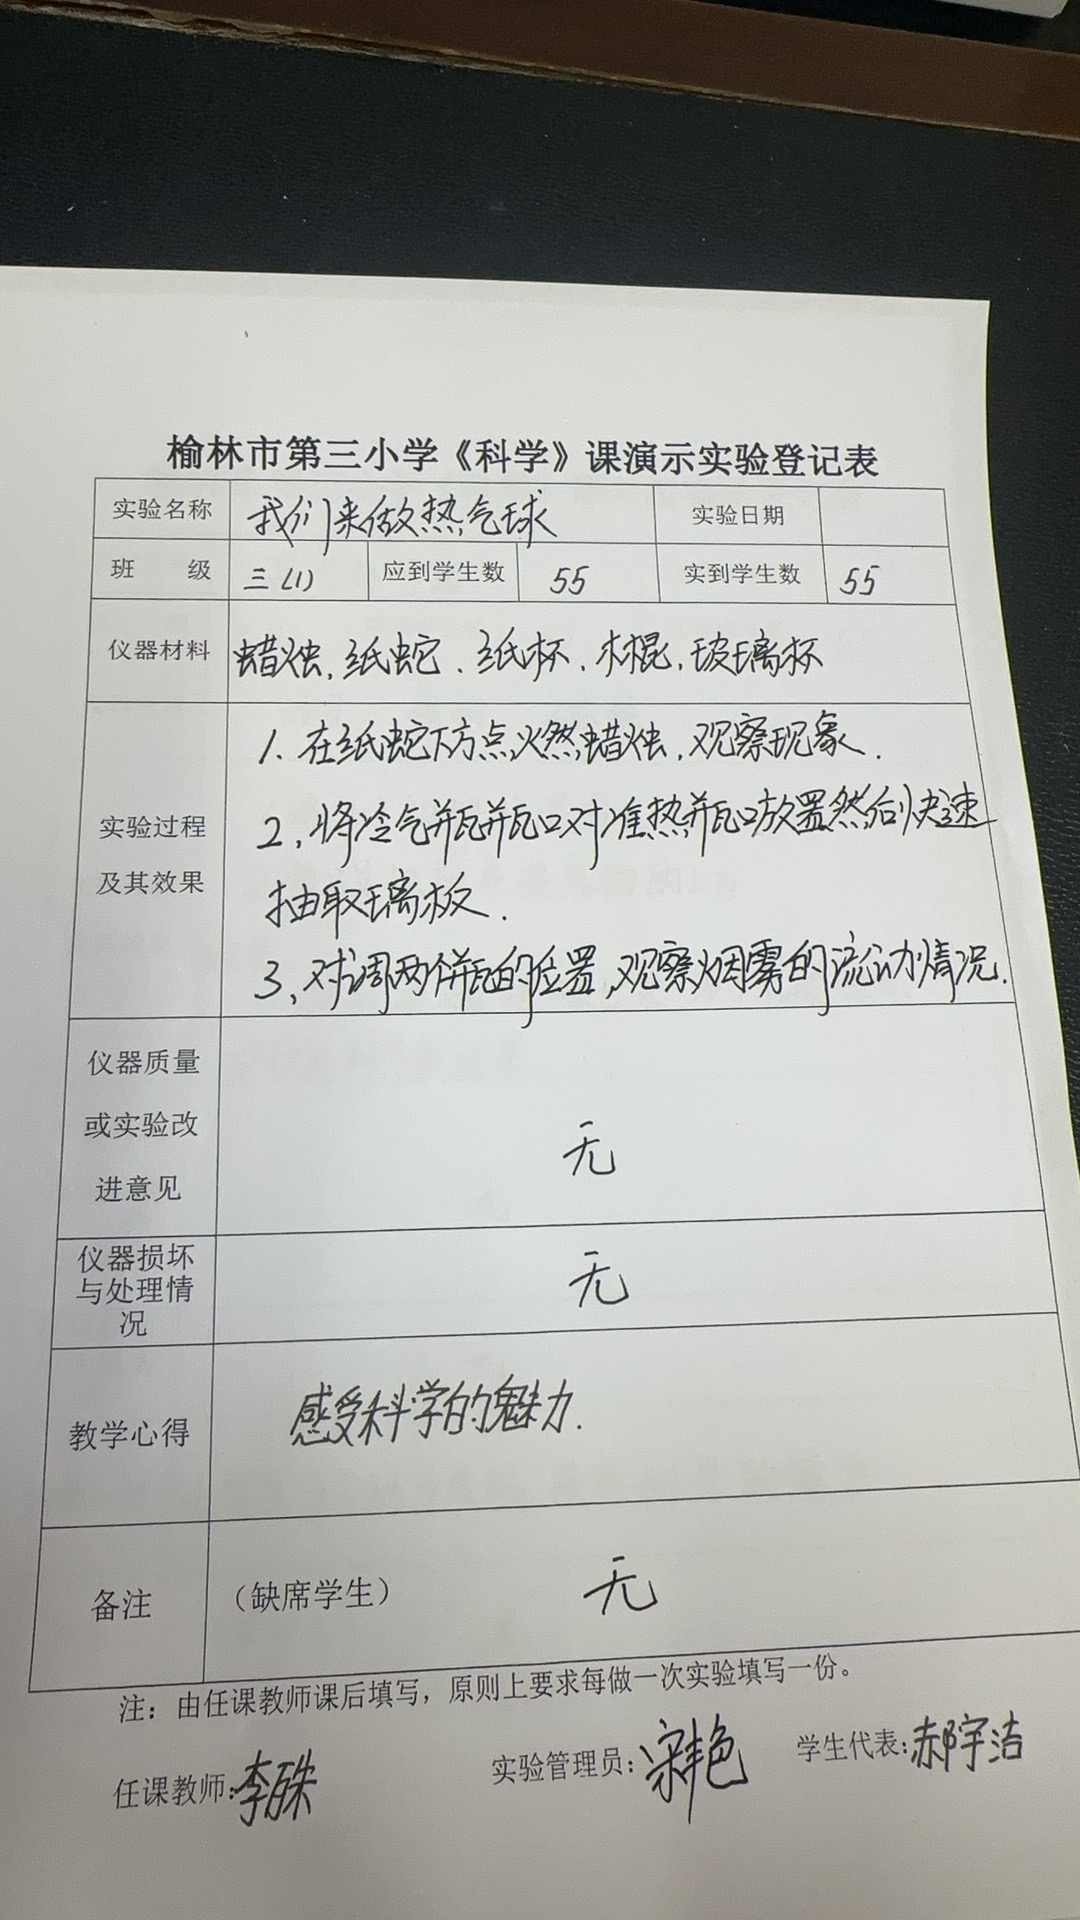 榆林市第三小学《科学》课演示实验登记表
实验名称 我们来做热气球 实验日期
班 级 三(1) 应到学生数 55 实到学生数 55
仪器材料 蜡烛、纸蛇、纸杯、木棍、玻璃杯
1、在纸蛇下方点火然蜡烛,观察现象.
实验过程 2、将冷气瓶瓶口对准热瓶口放置然后快速
及其效果 抽取璃板.
3、对调两个瓶的位置,观察烟雾的流动情况.
仪器质量
或实验改 无
进意见
仪器损坏
与处理情 无
况
教学心得 感受科学的魅力.
备注 (缺席学生) 无
注:由任课教师课后填写,原则上要求每做一次实验填写一份。
任课教师:李 实验管理员:宋艳 学生代表:郝宇洁